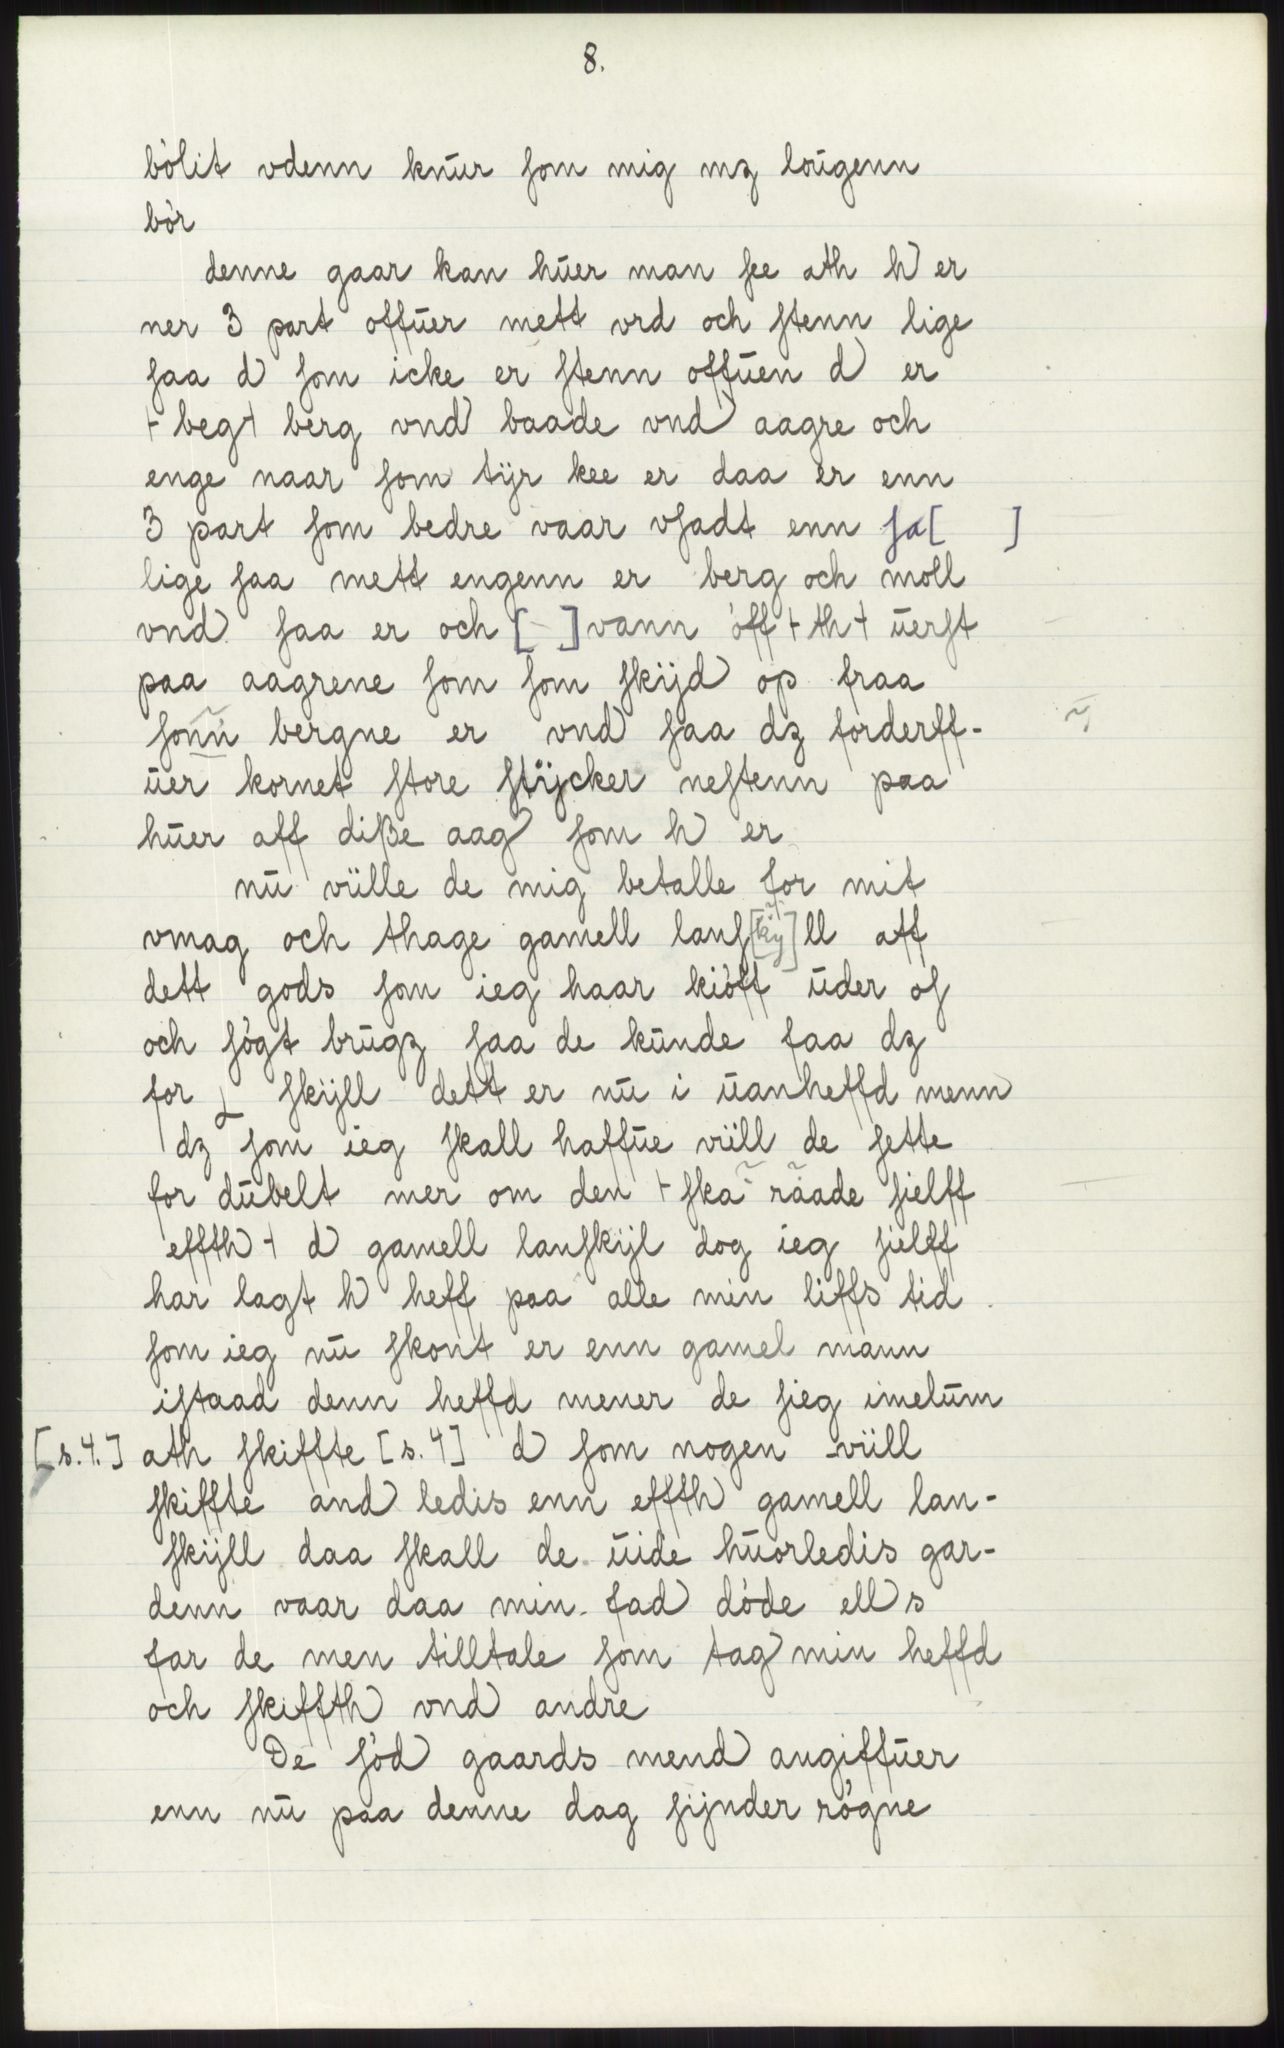 8.
bólit vdenn knūr som mig mz loūgenn
bór
denne gaar kan hūer man see ath h er
ner 3 part offūer mett vrd och stenn lige
saa d som icke er stenn offūen d er
+ beg + berg vnd baade vnd aagre och
enge naar som tijr kee er daa er enn
3 part som bedre vaar vsadt enn sa[ ]
lige saa mett engenn er berg och moll
vnd saa er och [ - ] vann óff + th + ūerst
paa aagrene som som skijd op fraa
sonñ bergne er vnd saa dz forderff-
ūer kornet store stijcker nestenn paa
hūer aff diße aag som h er
nū vülle de mig betalle for mit
vmag och thage gamell lans[kÿ]ll aff
dett gods som ieg haar kiófft ūder of
och sógt brūgz saa de kūnde faa dz
for skijll dett er nū i ūanheffd menn
dz som ieg skall haffūe vüll de sette
for dūbelt mer om den + ska raade sielff
effth + d gamell lanskijl dog ieg sielff
har lagt h heff paa alle min liffs tid
som ieg nū skont er enn gamel mann
istaad denn heffd mener de sieg imelūm
[s.4.] ath skiffte [s.4] d som nogen vüll
skiffte and ledis enn effth gamell lan-
skijll daa skall de ūide hūorledis gar-
denn vaar daa min fad dóde ell s
far de men tilltale som tag min heffd
och skiffth vnd andre
De sód gaards mend angiffūer
enn nū paa denne dag sijnder rógne